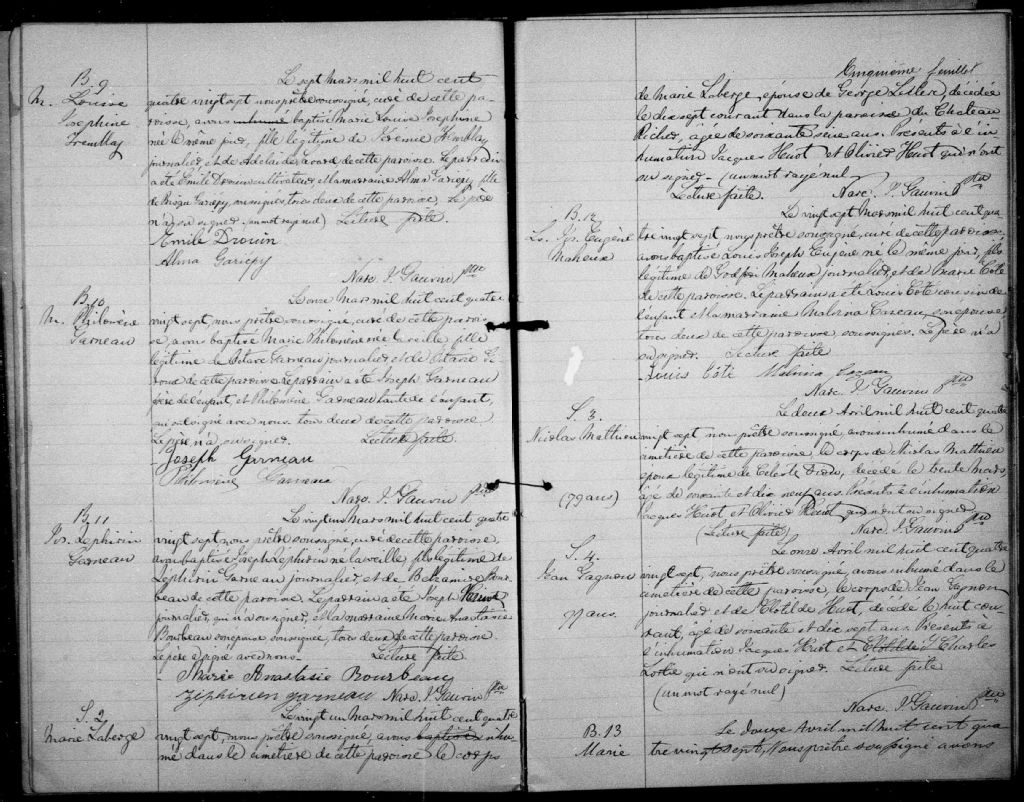 B. 9
M. Louise
Josephine
Tremblay
Le sept Mars mil huit cent
quatre vingt sept nous prêtre soussigné, curé de cette pa-
roisse, avons inhumé baptisé Marie Louise Josephine
née le même jour, fille légitime de Jérémie Tremblay
journalier et de Adelaide de cette paroisse. Le parrain
a été Emile Drouin cultivateur et la marraine Alma Gariepy fille
de Gariepy, tous deux de cette paroisse. Le père
n'a pu signer. (un mot rayé nul) Lecture faite.
Emile Drouin
Alma Gariepy
Narc. J. Gauvin ptre
B. 10
M. Philomène
Garneau
Le onze Mars mil huit cent quatre
vingt sept, nous prêtre soussigné, curé de cette parois-
se, avons baptisé Marie Philomène née la veille, fille
légitime de Octave Garneau journalier et de Octavie
de cette paroisse. Le parrain a été Joseph Garneau
frère de l'enfant et Philomène Garneau tante de l'enfant,
qui ont signé avec nous tous deux de cette paroisse
Le père n'a pu signer. Lecture faite.
Joseph Garneau
Philomène Garneau
Narc. J. Gauvin ptre
B. 11
Jos. Zephirin
Garneau
Le vingt un Mars mil huit cent quatre
vingt sept, nous prêtre soussigné, curé de cette paroisse,
avons baptisé Joseph Zéphirin né la veille, fils légitime de
Zéphirin Garneau journalier et de Bour-
beau de cette paroisse. Le parrain a été Joseph
journalier, qui n'a pu signer, et la marraine Marie Anastasie
Bourbeau son épouse soussignée, tous deux de cette paroisse.
Le père a signé avec nous. Lecture faite
Marie Anastasie Bourbeau
Ziphirien garneau Narc. J. Gauvin ptre
S. 2
Marie Laberge
Le vingt un Mars mil huit cent quatre
vingt sept, nous prêtre soussigné, avons baptisé inhu-
mé dans le cimetière de cette paroisse le corps
Cinquième feuillet
de Marie Laberge, épouse de George, décédée
le dix sept courant dans la paroisse du Chateau
Richer, âgée de soixante seize ans. Présents à l'in-
humation Jacques Huot et Olivier Huot qui n'ont
su signer. (un mot rayé nul)
Lecture faite. Narc. J. Gauvin ptre
B. 12
Ls. Jos. Eugène
Maheux
Le vingt sept Mars mil huit cent qua-
tre vingt sept, nous prêtre soussigné, curé de cette paroisse
avons baptisé Louis Joseph Eugène né le même jour, fils
légitime de Maheux journalier, et de Marie Coté
de cette paroisse. Le parrain a été Louis Coté cousin de
l'enfant et la marraine Malvina son épouse
tous deux de cette paroisse, soussignés. Le père n'a
su signer. Lecture faite
Louis Côté Malvina
Narc. J. Gauvin ptre
S. 3.
Nicolas Matthieu
(79 ans)
Le deux Avril mil huit cent quatre
vingt sept nous prêtre soussigné, avons inhumé dans le
cimetière de cette paroisse, le corps de Nicolas Matthieu
époux légitime de Celeste, décédé le trente Mars,
âgé de soixante et dix neuf ans. Présents à l'inhumation
Jacques Huot et Olivier Huot qui n'ont su signer.
(Lecture faite) Narc. J. Gauvin ptre
S. 4.
Jean Gagnon
77 ans.
Le onze Avril mil huit cent quatre
vingt sept, nous prêtre soussigné, avons inhumé dans le
cimetière de cette paroisse, le corps de Jean Gagnon
journalier et de Clotilde Huot, décédé le huit cou-
rant, âgé de soixante et dix sept ans. Présents à
l'inhumation Jacques Huot et Clotilde Charles
qui n'ont su signer. Lecture faite
(un mot rayé nul)
Narc. J. Gauvin ptre
B. 13
Marie
Le Douze Avril mil huit cent qua-
tre vingt sept, Nous prêtre soussigné avons